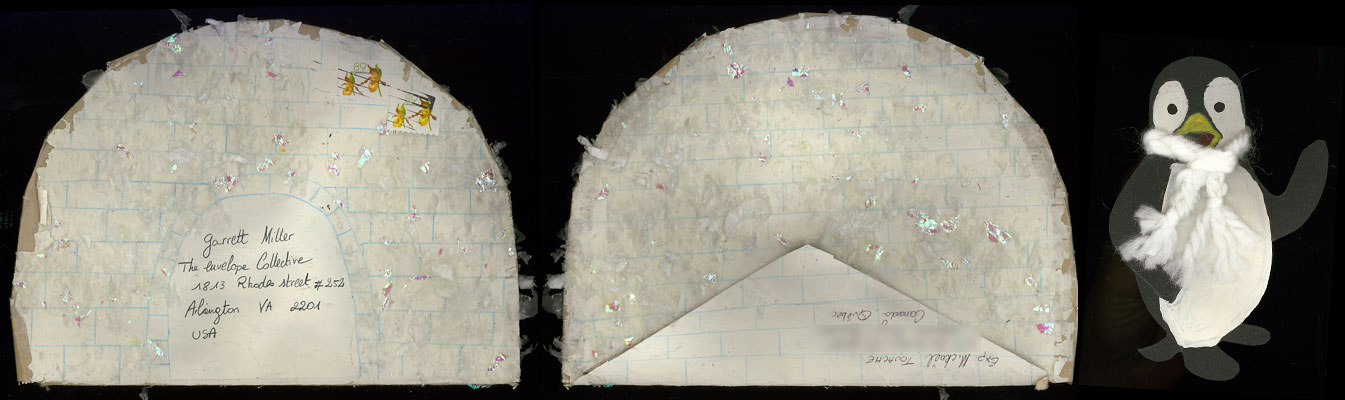 89
Garrett Miller
The Envelope Collective
1813 Rhodes street #252
Arlington VA 2201
USA
Exp: Mickaël TOURNCHE
Canada Québec